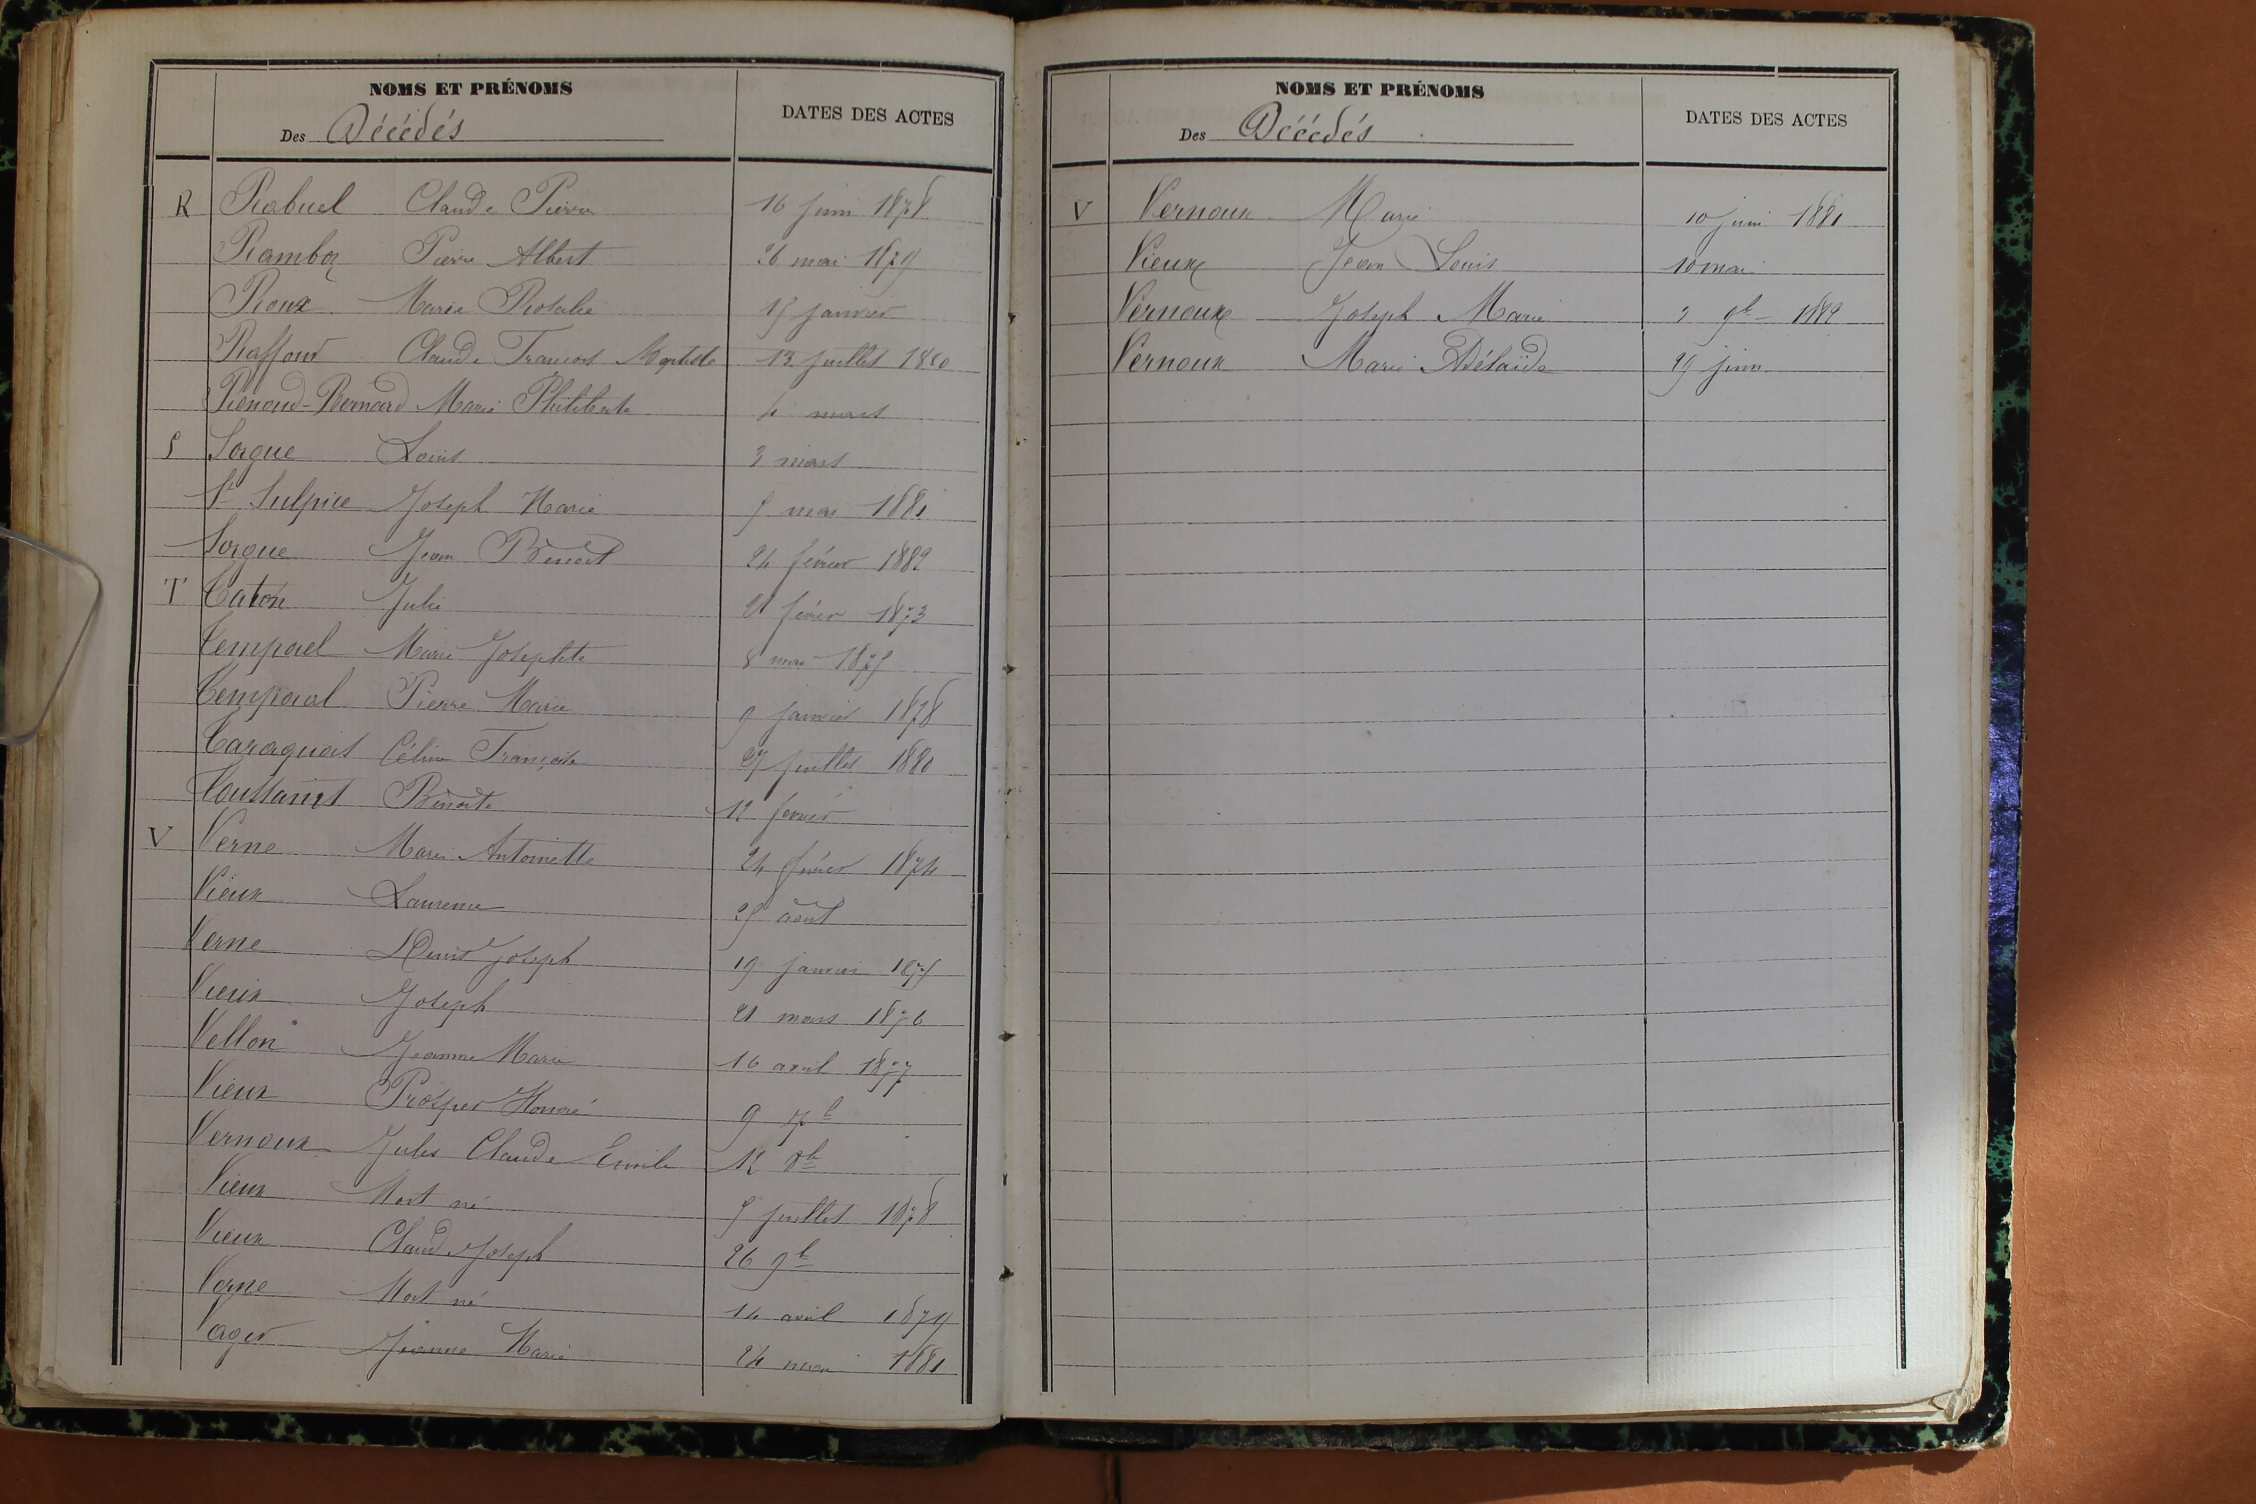 NOMS ET PRÉNOMS
DATES DES ACTES
Des Décédés
R Rabuel Claude Pierre 16 juin 1878
Ramboz Pierre Albert 26 mai 1879
Roux Marie Rosalie 15 janvier
Raffour Claude François Baptiste 13 juillet 1880
Renoud-Bernard Marie Philiberte 4 mars
S Sorgue Louis 3 mars
St Sulpice Joseph Marie 5 mai 1881
Sorgue Jean Benoit 24 février 1882
T Taton Julie 21 février 1873
Temporel Marie Josephte 8 mai 1875
Temporal Pierre Marie 9 janvier 1878
Taraquois Céline Françoise 27 juillet 1880
Toussaint Benoite 12 février
V Verne Marie Antoinette 24 février 1874
Vieux Laurence 25 août
Verne Denis Joseph 19 janvier 1875
Vieux Joseph 21 mars 1876
Vellon Jeanne Marie 16 avril 1877
Vieux Prosper Honoré 9 7b
Vernoux Jules Claude Emile 12 8b
Vieux Mort né 5 juillet 1878
Vieux Claude Joseph 26 9b
Verne Mort né 14 avril 1879
Jeanne Marie 24 mai 1881
NOMS ET PRÉNOMS
DATES DES ACTES
Des Décédés
V Vernoux Marie 10 juin 1881
Vieux Jean Louis 10 mai
Vernoux Joseph Marie 2 9b 1882
Vernoux Marie Adélaïde 29 juin